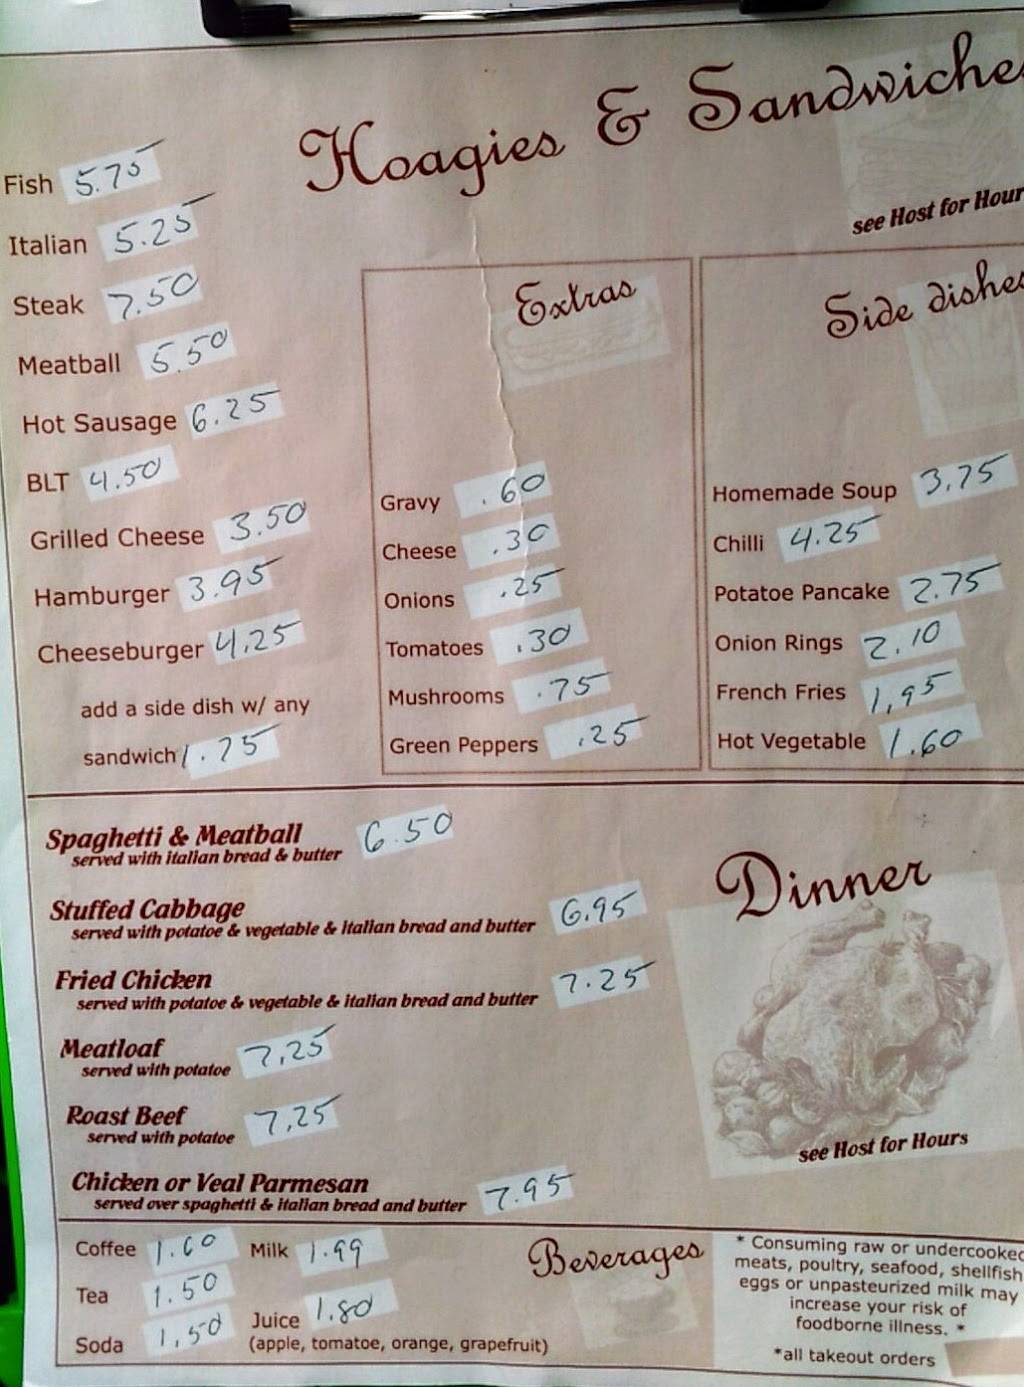 Hoagies & Sandwiche
see Host for Hour
Fish 5.75
Italian 5.25
Steak 7.50
Meatball 5.50
Hot Sausage 6.25
BLT 4.50
Grilled Cheese 3.50
Hamburger 3.95
Cheeseburger 4.25
add a side dish w/ any
sandwich 1.75
Extras
Gravy .60
Cheese .30
Onions .25
Tomatoes .30
Mushrooms .75
Green Peppers .25
Side dishe
Homemade Soup 3.75
Chilli 4.25
Potatoe Pancake 2.75
Onion Rings 2.10
French Fries 1.95
Hot Vegetable 1.60
Dinner
see Host for Hours
Spaghetti & Meatball 6.50
served with italian bread & butter
Stuffed Cabbage
served with potatoe & vegetable & italian bread and butter 6.95
Fried Chicken
served with potatoe & vegetable & italian bread and butter 7.25
Meatloaf 7.25
served with potatoe
Roast Beef 7.25
served with potatoe
Chicken or Veal Parmesan 7.95
served over spaghetti & italian bread and butter
Beverages
Coffee 1.60
Tea 1.50
Soda 1.50
Milk 1.99
Juice 1.80
(apple, tomatoe, orange, grapefruit)
* Consuming raw or undercooked
meats, poultry, seafood, shellfish
eggs or unpasteurized milk may
increase your risk of
foodborne illness. *
*all takeout orders